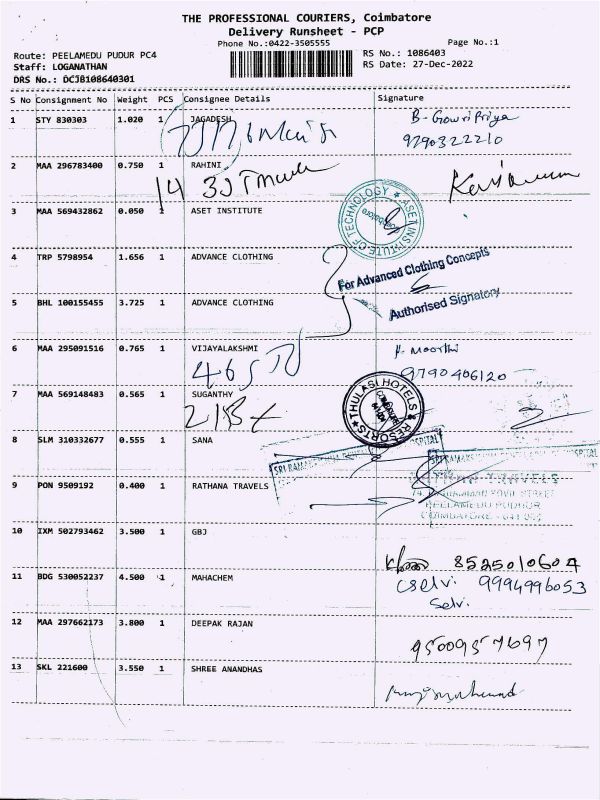 THE PROFESSIONAL COURIERS, Coimbatore
Delivery Runsheet - PCP
Phone No.:0422-3505555
Page No.:1
Route: PEELAMEDU PUDUR PC4
Staff: LOGANATHAN
DRS No.: DCJB108640301
RS No.: 1086403
RS Date: 27-Dec-2022
S No Consignment No Weight PCS Consignee Details Signature
1 STY 830303 1.020 1 JAGADESH B- Gowri Priya
9790322210
2 MAA 296783400 0.750 1 RAHINI
14
3 MAA 569432862 0.050 1 ASET INSTITUTE
ASET INSTITUTE OF TECHNOLOGY
4 TRP 5798954 1.656 1 ADVANCE CLOTHING
For Advanced Clothing Concepts
5 BHL 100155455 3.725 1 ADVANCE CLOTHING
Authorised Signatory
6 MAA 295091516 0.765 1 VIJAYALAKSHMI
9790406120
7 MAA 569148483 0.565 1 SUGANTHY
THULASI HOTELS RESORTS
8 SLM 310332677 0.555 1 SANA
9 PON 9509192 0.400 1 RATHANA TRAVELS
TRAVELS
PEELAMEDU PUDHUR
COIMBATORE
10 IXM 502793462 3.500 1 GBJ
8525010604
11 BDG 530052237 4.500 1 MAHACHEM
Cselv. 9994996053
Selv.
12 MAA 297662173 3.800 1 DEEPAK RAJAN
9500957697
13 SKL 221600 3.550 1 SHREE ANANDHAS